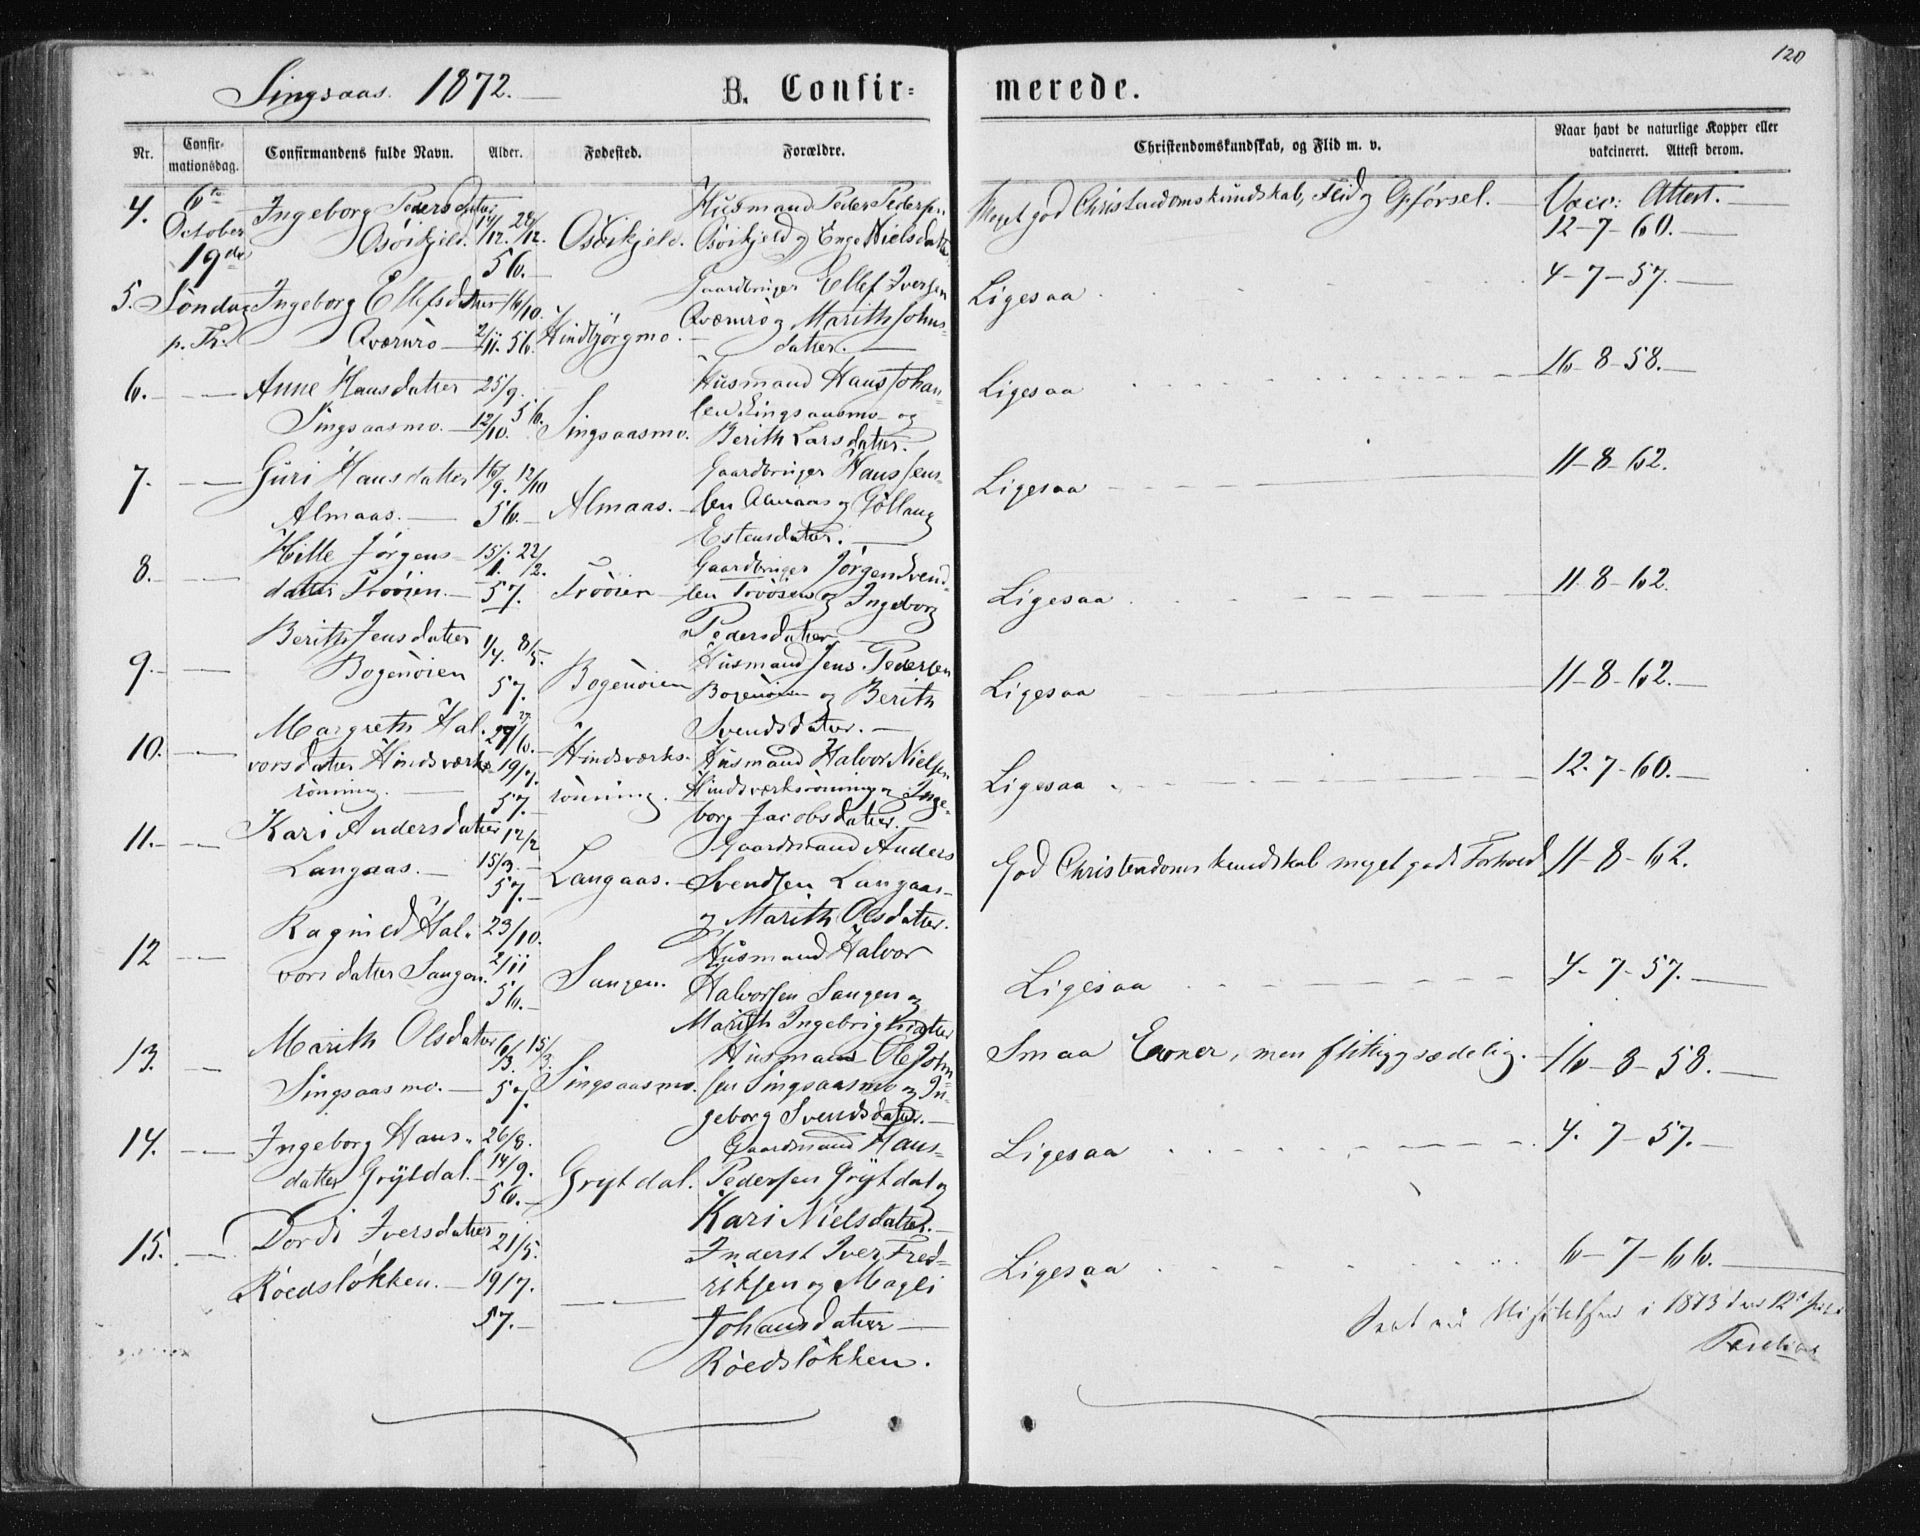 120
Singsaas. 1872.
B. Confirmerede.
Nr. Confirmationsdag. Confirmandens fulde Navn. Alder. Fødested. Forældre. Christendomskundskab, og Flid m. v. Naar havt de naturlige Kopper eller vakcineret. Attest derom.
4. 6te October 19de Søndag p. Tr:
Ingeborg Pedersdatter
Osöikjeld.
56.
Osöikjeld.
Husmand Peder Pedersen
Osöikjeld og Enge Nielsdatter
Meget god Christendomskundskab, Flid og Opførsel.
Vacc: Attest.
12-7-60.
5. Ingeborg Ellefsdatter
Qværnrö
16/10.
2/11. 56.
Hindbjörgmo.
Gaardbruger Ellef Iversen
Qværnrö og Marith Johns-
datter.
Ligesaa
4-7-57.
6. Anne Hansdatter
Singsaasmo.
25/9.
12/10. 56.
Singsaasmo.
Husmand Hans Johan-
sen Singsaasmo og
Berith Larsdatter.
Ligesaa
16-8-58.
7. Guri Hansdatter
Almaas.
16/9. 12/10
56.
Almaas.
Gaardbruger Hans Jens-
sen Almaas og Göllaug
Estensdatter.
Ligesaa
11-8-62.
8. Hille Jörgens-
datter Trööien.
15/1. 22/2.
57.
Trööien
Gaardbruger Jörgen Svend-
sen Trööien og Ingeborg
Pedersdatter
Ligesaa
11-8-62.
9. Berith Jensdatter
Bogenöien
1/4. 8/5.
57.
Bogenöien
Husmand Jens Pedersen
Bogenöien og Berith
Svendsdatter.
Ligesaa
11-8-62.
10. Margreth Hal-
vorsdatter Hindsværks-
rönning.
27/6.
19/7.
57.
Hindsværks-
rönning.
Husmand Halvor Nielsen
Hindsværksrönning og Inge-
borg Jacobsdatter.
Ligesaa
12-7-60.
11. Kari Andersdatter
Langaas.
12/2
15/3.
57.
Langaas.
Gaardmand Anders
Svendsen Langaas
og Marith Olsdatter.
God Christendomskundskab meget godt Forhold
11-8-62.
12 Ragnild Hal-
vorsdatter Sangen.
23/10.
2/11
56.
Sangen.
Husmand Halvor
Halvorsen Sangen og
Marith Ingebrigtsdatter
Ligesaa
4-7-57.
13. Marith Olsdatter
Singsaasmo.
6/3. 15/3.
57.
Singsaasmo.
Husmand Ole John-
sen Singsaasmo og In-
geborg Svendsdatter.
Smaa Evner, men flittig og sædelig.
16-8-58.
14. Ingeborg Hans-
datter Grÿtdal.
26/8.
14/9.
56.
Grytdal.
Gaardmand Hans
Pedersen Grÿtdal og
Kari Nielsdatter.
Ligesaa
4-7-57.
15. Dordi Iversdatter
Röedslökken.
21/5.
19/7.
57.
Inderst Iver Fred-
riksen og Magli
Johansdatter
Röedslökken.
Ligesaa
6-7-66.
i 1873 den 12